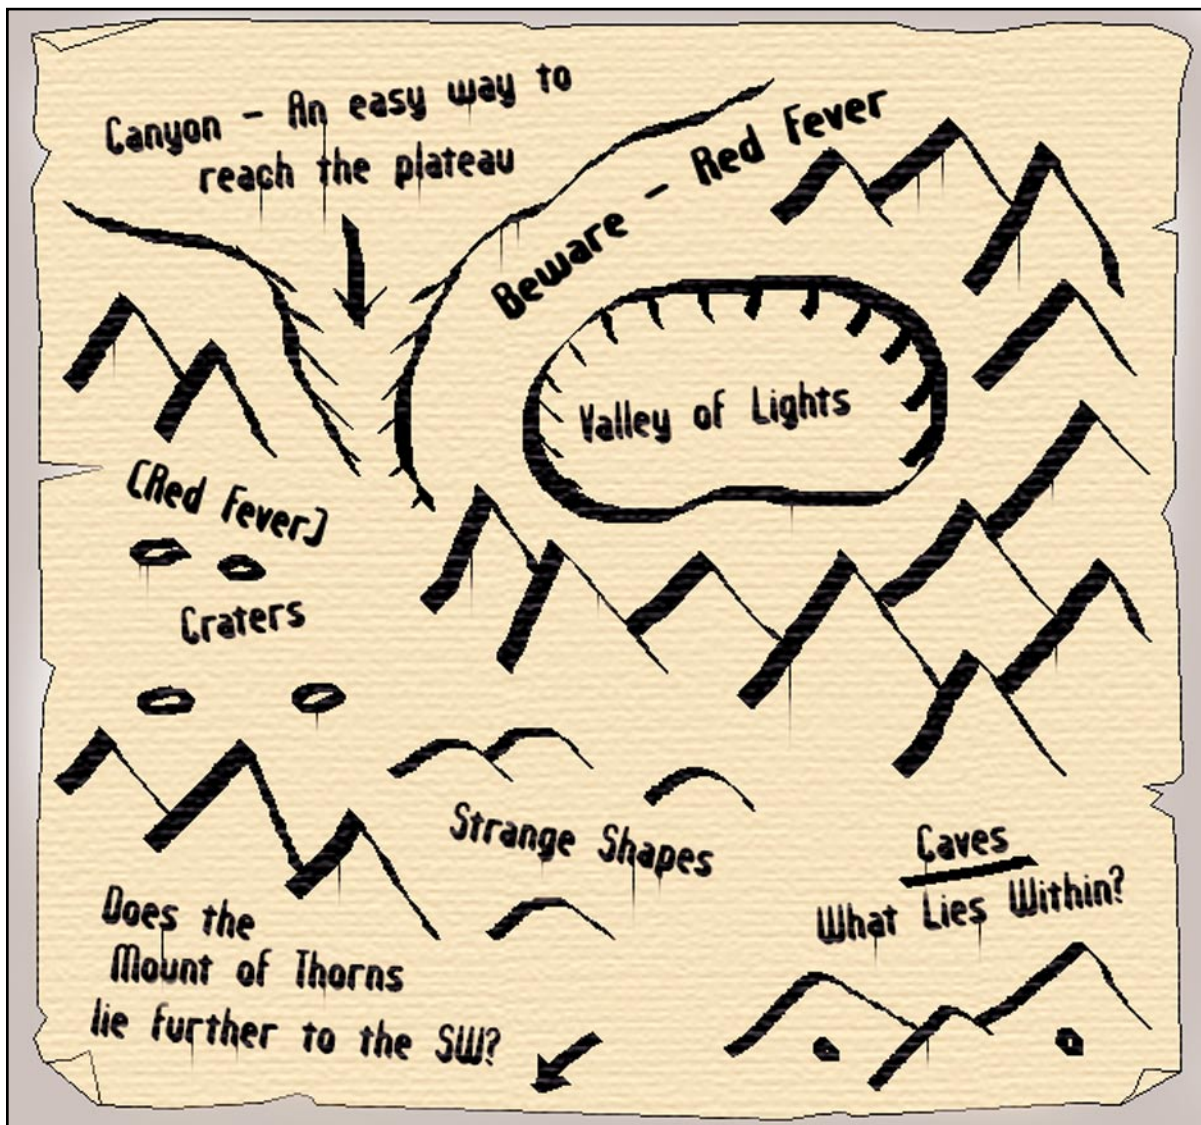 Canyon - An easy way to
reach the plateau
Beware - Red Fever
Valley of Lights
(Red Fever)
Craters
Strange Shapes
Caves
What Lies Within?
Does the
Mount of Thorns
lie further to the SW?